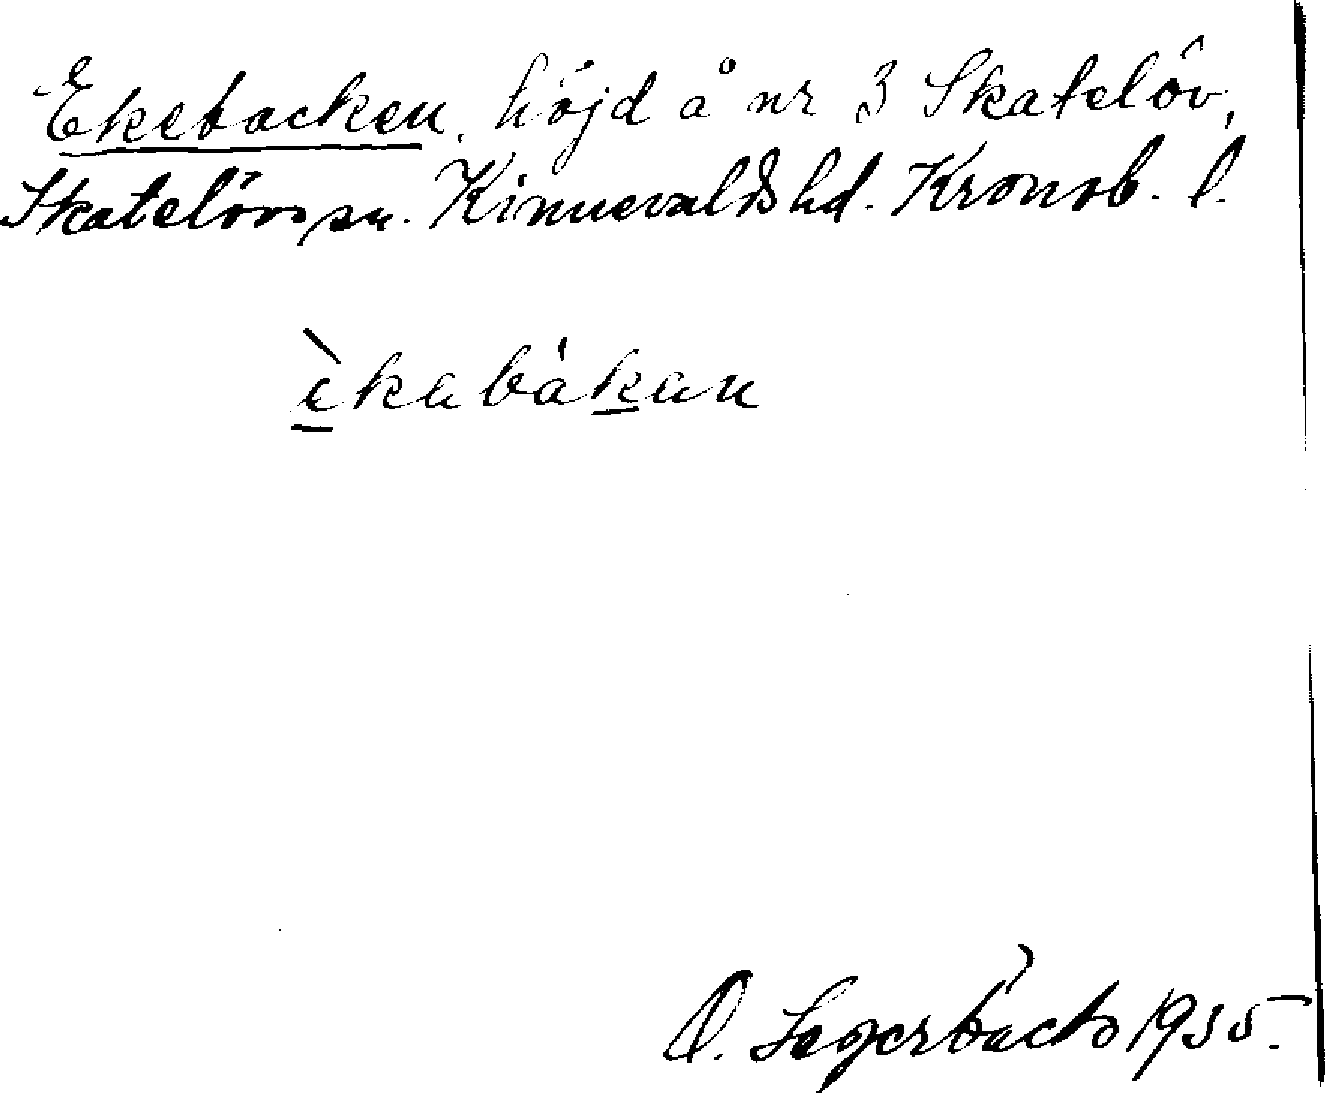 Ekebacken, höjd å nr 3 Skatelöv,
Skatelövs sn. Kinnevalds hd. Kronob. l.
èkabákan
O. Sagerbäck 1935.